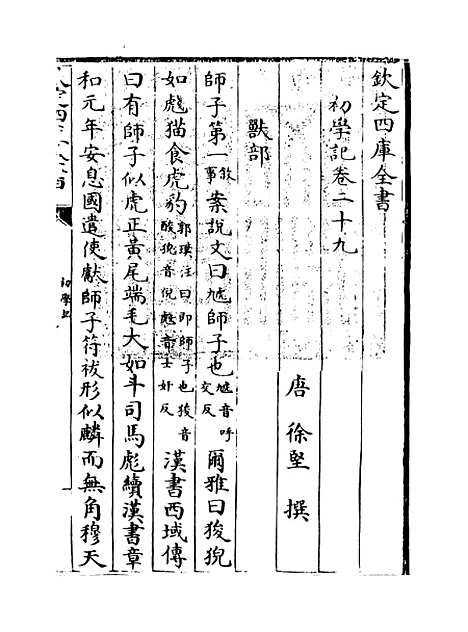 欽定四庫全書
初學記卷二十九
唐 徐堅 撰
獸部
師子第一敘事案說文曰虓師子也虓音呼交反爾雅曰狻猊
如虦猫食虎豹郭璞注曰即師子也狻音酸猊音倪虦音士奸反漢書西域傳
曰有師子似虎正黃尾端毛大如斗司馬彪續漢書章
和元年安息國遣使獻師子符祓形似麟而無角穆天
初學記